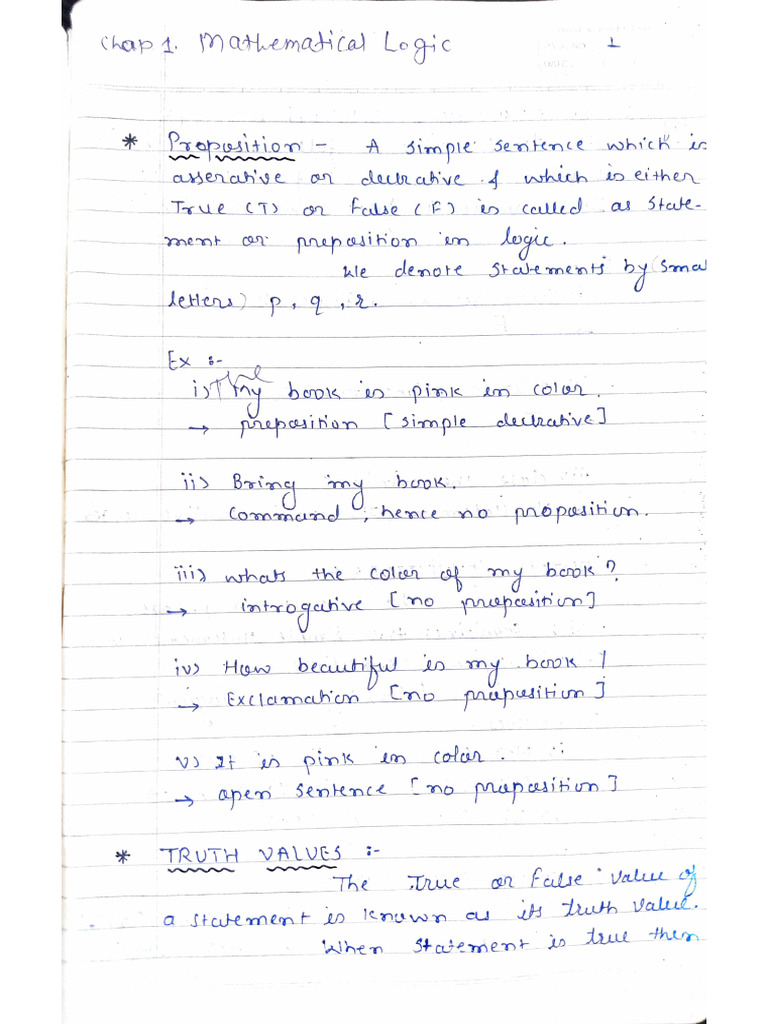 Chap 1. Mathematical Logic 1
* Proposition - A simple sentence which is
asserative or declrative & which is either
True (T) or False (F) is called as state-
ment or preposition in logic.
We denote statements by (smal
letters) p, q, r.
Ex :-
i) The my book is pink in color.
→ preposition [simple declrative]
ii) Bring my book.
→ Command, hence no proposition.
iii) whats the color of my book?
→ introgative [no proposition]
iv) How beautiful is my book !
→ Exclamation [no proposition]
v) It is pink in color.
→ open sentence [no proposition]
* TRUTH VALUES :-
The True or False value of
a statement is known as its truth value.
When statement is true then